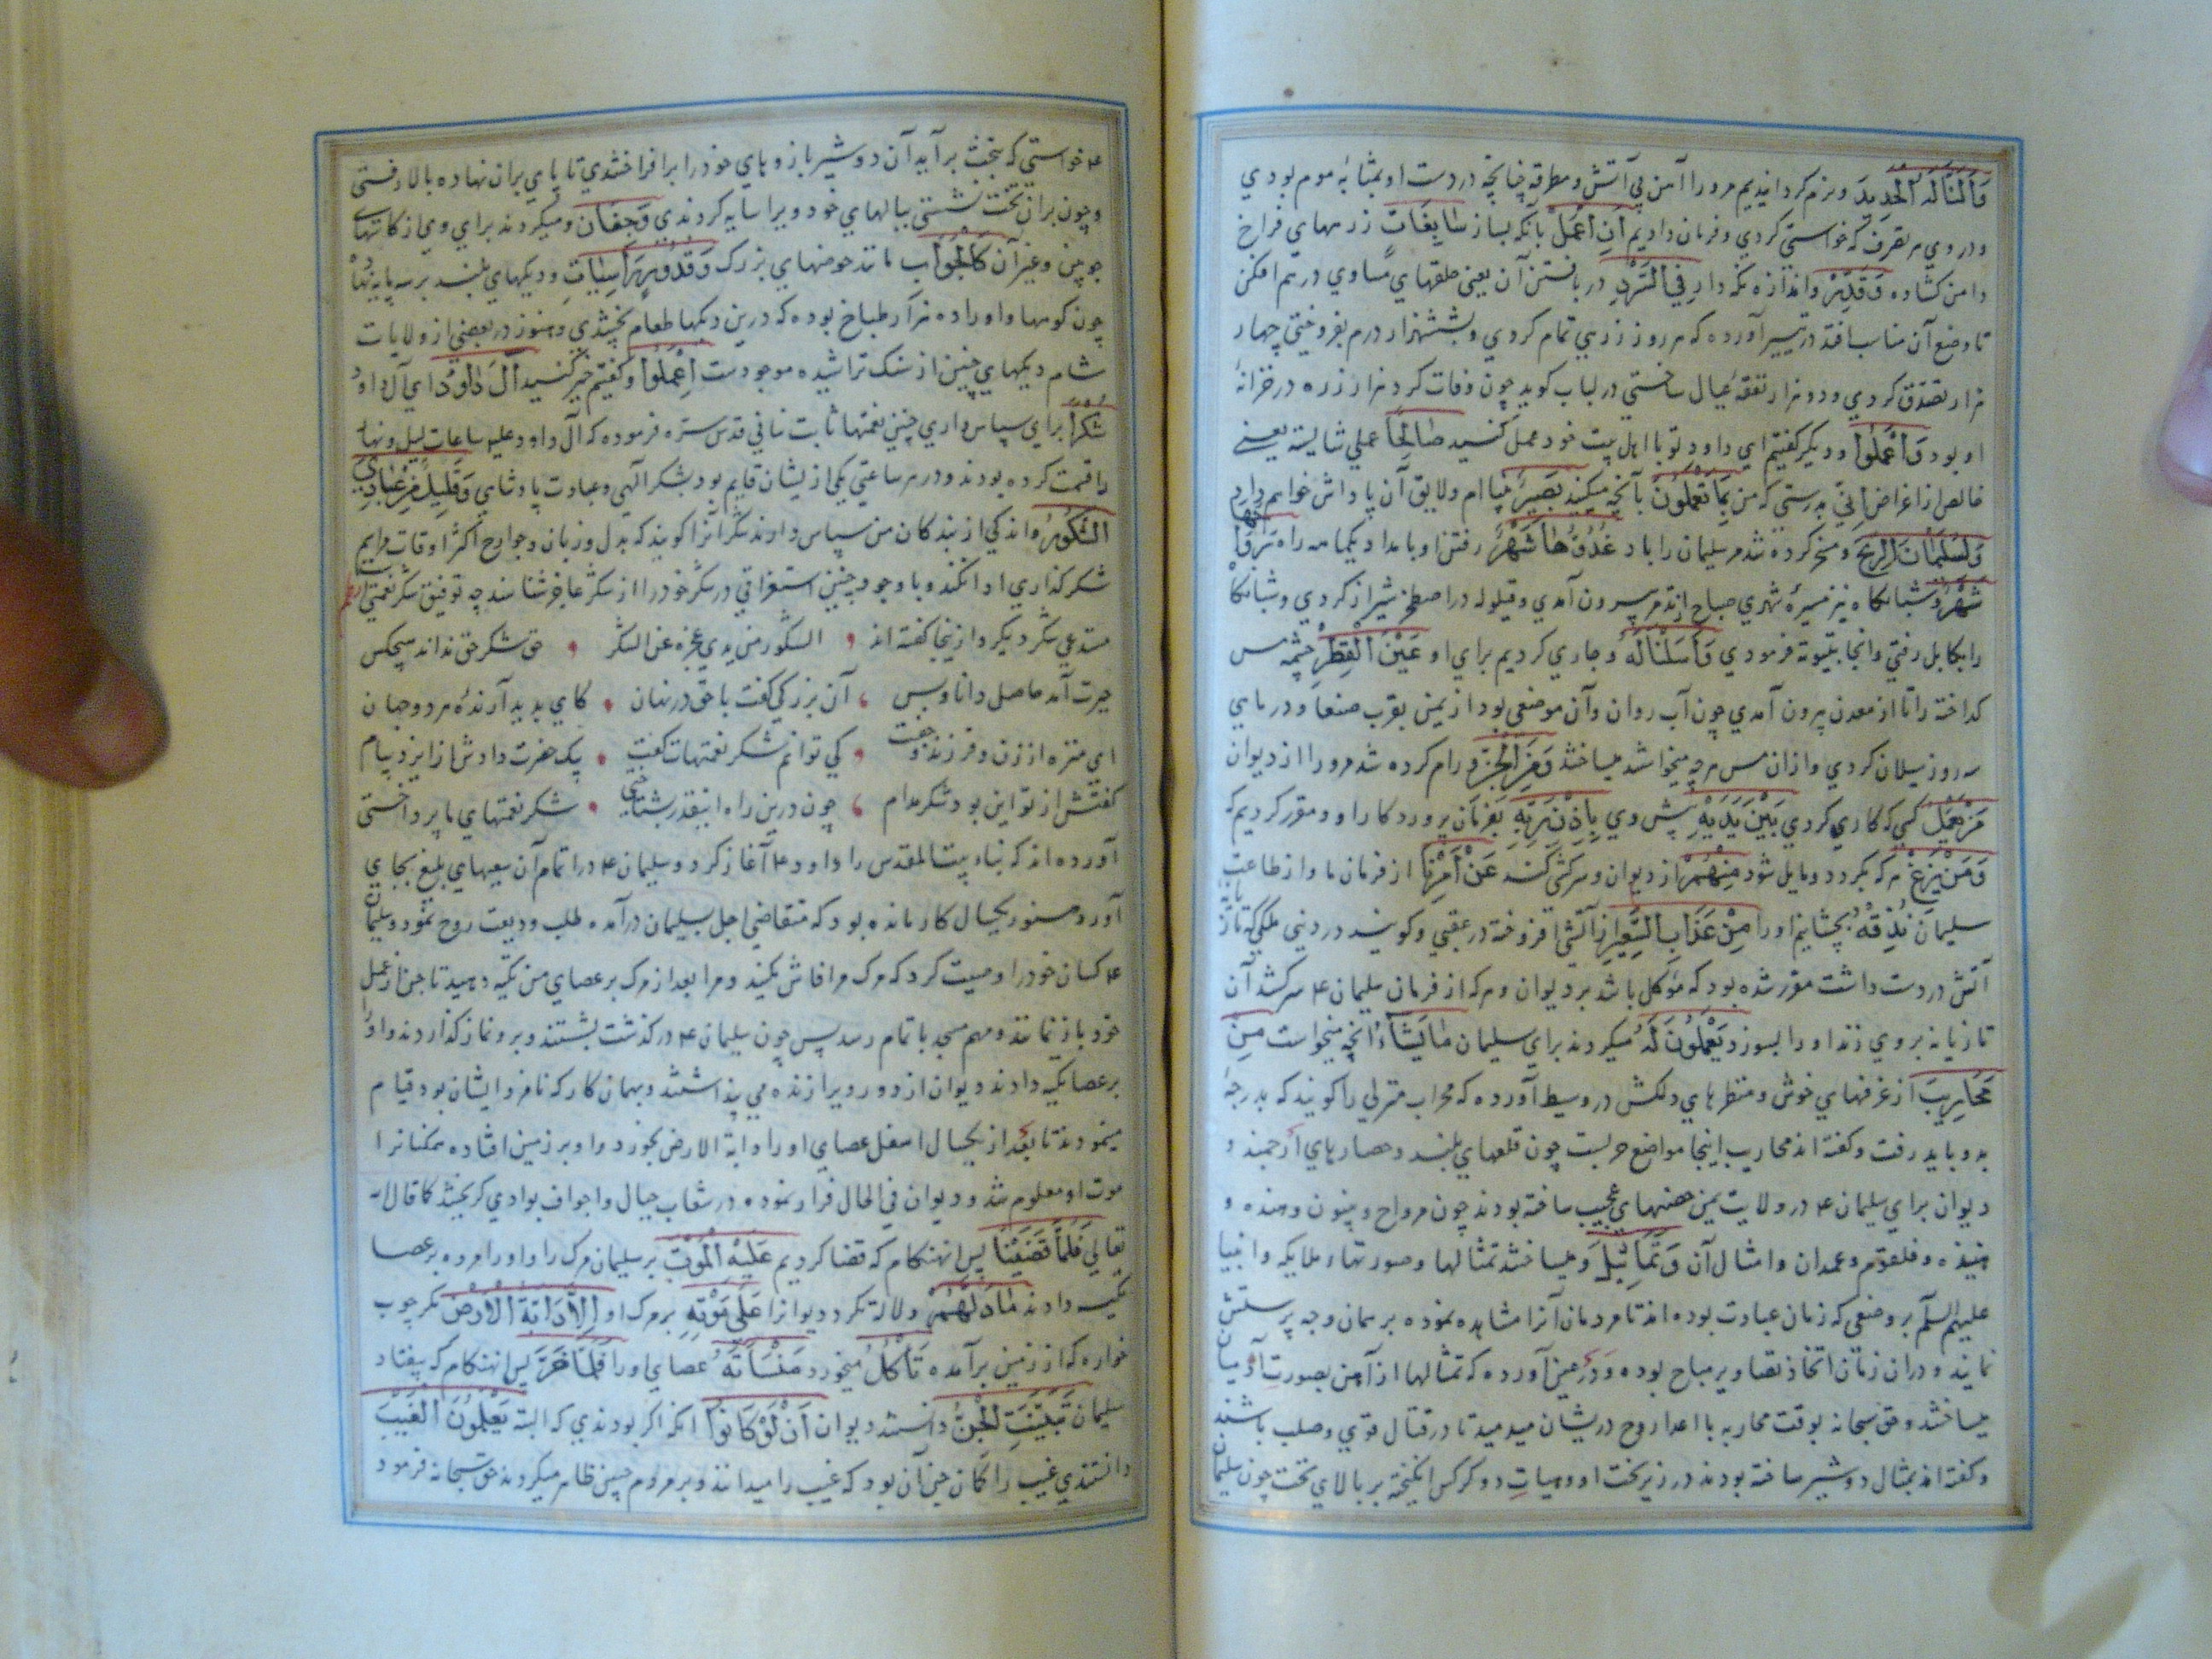 وَأَلَنَّا لَهُ الْحَدِيدَ ونرم کردانیدیم مرورا آهن بی آتش ومطرقه چنانچه دردست او بمثابه موم بودی
ودروی هر تصرف که خواستی کردی وفرمان دادیم أَنِ اعْمَلْ بآنکه بساز سَابِغَاتٍ زرههای فراخ
دامن کشاده وَقَدِّرْ واندازه نکه دار فِي السَّرْدِ دربافتن آن یعنی حلقهای مساوی درهم افکن
تا وضع آن مناسب افتد درتیسیر آورده که هرروز زرهی تمام کردی وبششهزار درم بفروختی چهار
هزار تصدق کردی ودو هزار نفقه عیال ساختی درلباب کوید چون وفات کرد هزار زره درخزانه
او بود وَاعْمَلُوا ودیکر کفتیم ای داود تو با اهل بیت خود عمل کنید صَالِحًا عملی شایسته یعنی
خالص از اغراض إِنِّي بدرستی که من بِمَا تَعْمَلُونَ بآنچه میکنید بَصِيرٌ بیناام ولایق آن پاداش خواهم داد
وَلِسُلَيْمَانَ الرِّيحَ ومسخر کرده شد مرسلیمان را باد غُدُوُّهَا شَهْرٌ رفتن او بامداد یکماهه راه وَرَوَاحُهَا
شَهْرٌ وشبانکاه نیز مسیره شهری صباح از تدمر بیرون آمدی وقیلوله دراصطخر شیراز کردی وشبانکاه
رابکابل رفتی وانجا بیتوته فرمودی وَأَسَلْنَا لَهُ وجاری کردیم برای او عَيْنَ الْقِطْرِ چشمه مس
کداخته را تا از معدن بیرون آمدی چون آب روان وآن موضعی بود از یمن بقرب صنعا ودر ماهی
سه روز سیلان کردی وازان مس هرچه میخواستند میساختند وَمِنَ الْجِنِّ ورام کرده شد مرورا از دیوان
مَنْ يَعْمَلُ کسی که کاری کردی بَيْنَ يَدَيْهِ پیش وی بِإِذْنِ رَبِّهِ بفرمان پروردکار او ومقرر کردیم که
وَمَنْ يَزِغْ هرکه بکردد ومایل شود مِنْهُمْ از دیوان وسرکشی کند عَنْ أَمْرِنَا از فرمان ما واز طاعت
سلیمان نُذِقْهُ بچشانیم اورا مِنْ عَذَابِ السَّعِيرِ از آتش افروخته درعقبی وکویند دردنی ملکی که تازیانه
آتش دردست داشت مقرر شده بود که موکل باشد بردیوان وهرکه از فرمان سلیمان ع سرکشد آن
تازیانه بروی زند اورا بسوزد يَعْمَلُونَ لَهُ میکردند برای سلیمان مَا يَشَاءُ انچه میخواست مِنْ
مَحَارِيبَ از غرفهای خوش ومنظرهای دلکش دروسیط آورده که محراب منزلی را کویند که بدرجه
بدو باید رفت وکفته اند محاریب اینجا مواضع حربست چون قلعهای بلند وحصارهای ارجمند و
دیوان برای سلیمان ع درولایت یمن حصنهای عجیب ساخته بودند چون مرواح وبینون وهنده و
هنیده وفلعوم وعمدان وامثال آن وَتَمَاثِيلَ ومیساختند تمثالها وصورتهاء ملایکه وانبیا
علیهم السلم بروضعی که زمان عبادت بوده اند تا مردمان آنرا مشاهده نموده برهمان وجه پرستش
نمایند ودران زمان اتخاذ تصاویر مباح بوده ودرعین آورده که تمثالها از آهن بصورت آدمیان
میساختند وحق سبحانه بوقت محاربه با اعدا روح دریشان میدمید تا درقتال قوی وصلب باشند
وکفته اند بمثال دوشیر ساخته بودند درزیر تخت او وهیات دو کرکس انکیخته بربالای تخت چون سلیمان
ع خواستی که بتخت برآید آن دوشیر بازوهای خودرا برافراختندی تا پای بران نهاده بالا رفتی
وچون بران تخت نشستی ببالهای خود ویرا سایه کردندی وَجِفَانٍ ومیکردند برای وی از کاسهای
چوبین وغیرآن كَالْجَوَابِ مانند حوضهای بزرک وَقُدُورٍ رَاسِيَاتٍ ودیکهای بلند برسه پایه نهاده
چون کوهها واورا ده هزار طباخ بوده که درین دیکها طعام پختندی وهنوز دربعضی از ولایات
شام دیکهای چنین از سنک تراشیده موجودست اعْمَلُوا وکفتیم خیر کنید آلَ دَاوُدَ ای آل داود
شُكْرًا برای سپاس داری چنین نعمتها ثابت بنانی قدس سره فرموده که آل داود علیه ساعات لیل ونهار
راقسمت کرده بودند ودرهر ساعتی یکی ازیشان قایم بود بشکر الهی وعبادت پادشاهی وَقَلِيلٌ مِنْ عِبَادِيَ
الشَّكُورُ واندکی از بندکان من سپاس دارند شکر آنرا کویند که بدل وزبان وجوارح اکثر اوقات مراسم
شکرکذاری ادا کند وبا وجود چنین استغراقی درشکر خودرا از شکر عاجز شناسد چه توفیق شکر نعمتی
مستدعی شکر دیکر وازینجا کفته اند ، الشکور من یری عجزه عن الشکر ، حق شکر حق نداند هیچکس
حیرت آمد حاصل دانا وبس ، آن بزرکی کفت با حق درنهان ، کای پدید آرنده هر دو جهان
ای منزه از زن وفرزند وجفت ، کی توانم شکر نعمتهات کفت ، پیک حضرت دادش از ایزد پیام
کفتش از تو این بود شکر مدام ، چون درین راه اینقدر بشتافتی ، شکر نعمتهای ما پرداختی
آورده اند که بناء بیت المقدس را داود ع آغاز کرد وسلیمان ع دراتمام آن سعیهای بلیغ بجای
آورد وهنوز یکسال کار مانده بود که متقاضی اجل بسلیمان درآمده طلب ودیعت روح نمود وسلیمان
ع کسان خودرا وصیت کرد که مرک مرا فاش مکنید ومرا بعد از مرک برعصای من تکیه دهید تا جن از عمل
خود باز نمانند ومهم مسجد باتمام رسد پس چون سلیمان ع درکذشت بشستند وبرو نماز کذاردند واورا
برعصا تکیه دادند دیوان از دور ویرا زنده می پنداشتند وبهمان کار که نامزد ایشان بود قیام
مینمودند تا بعد از یکسال اسفل عصای اورا دابة الارض بخورد واو برزمین افتاده همکنانرا
موت او معلوم شد ودیوان فی الحال فرار نموده درشعاب جبال واجواف بوادی کریختند کما قال الله
تعالی فَلَمَّا قَضَيْنَا پس انهنکام که قضا کردیم عَلَيْهِ الْمَوْتَ برسلیمان مرک را واورا مرده برعصا
تکیه دادند مَا دَلَّهُمْ دلالت نکرد دیوانرا عَلَى مَوْتِهِ برمرک او إِلَّا دَابَّةُ الْأَرْضِ مکر چوب
خواره که از زمین برآمده تَأْكُلُ میخورد مِنْسَأَتَهُ عصای اورا فَلَمَّا خَرَّ پس انهنکام که بیفتاد
سلیمان تَبَيَّنَتِ الْجِنُّ دانستند دیوان أَنْ لَوْ كَانُوا انکه اکر بودندی که البته يَعْلَمُونَ الْغَيْبَ
دانستندی غیب را کمان جن آن بود که غیب را میدانند وبرمردم چنین ظاهر میکردند حق سبحانه فرمود